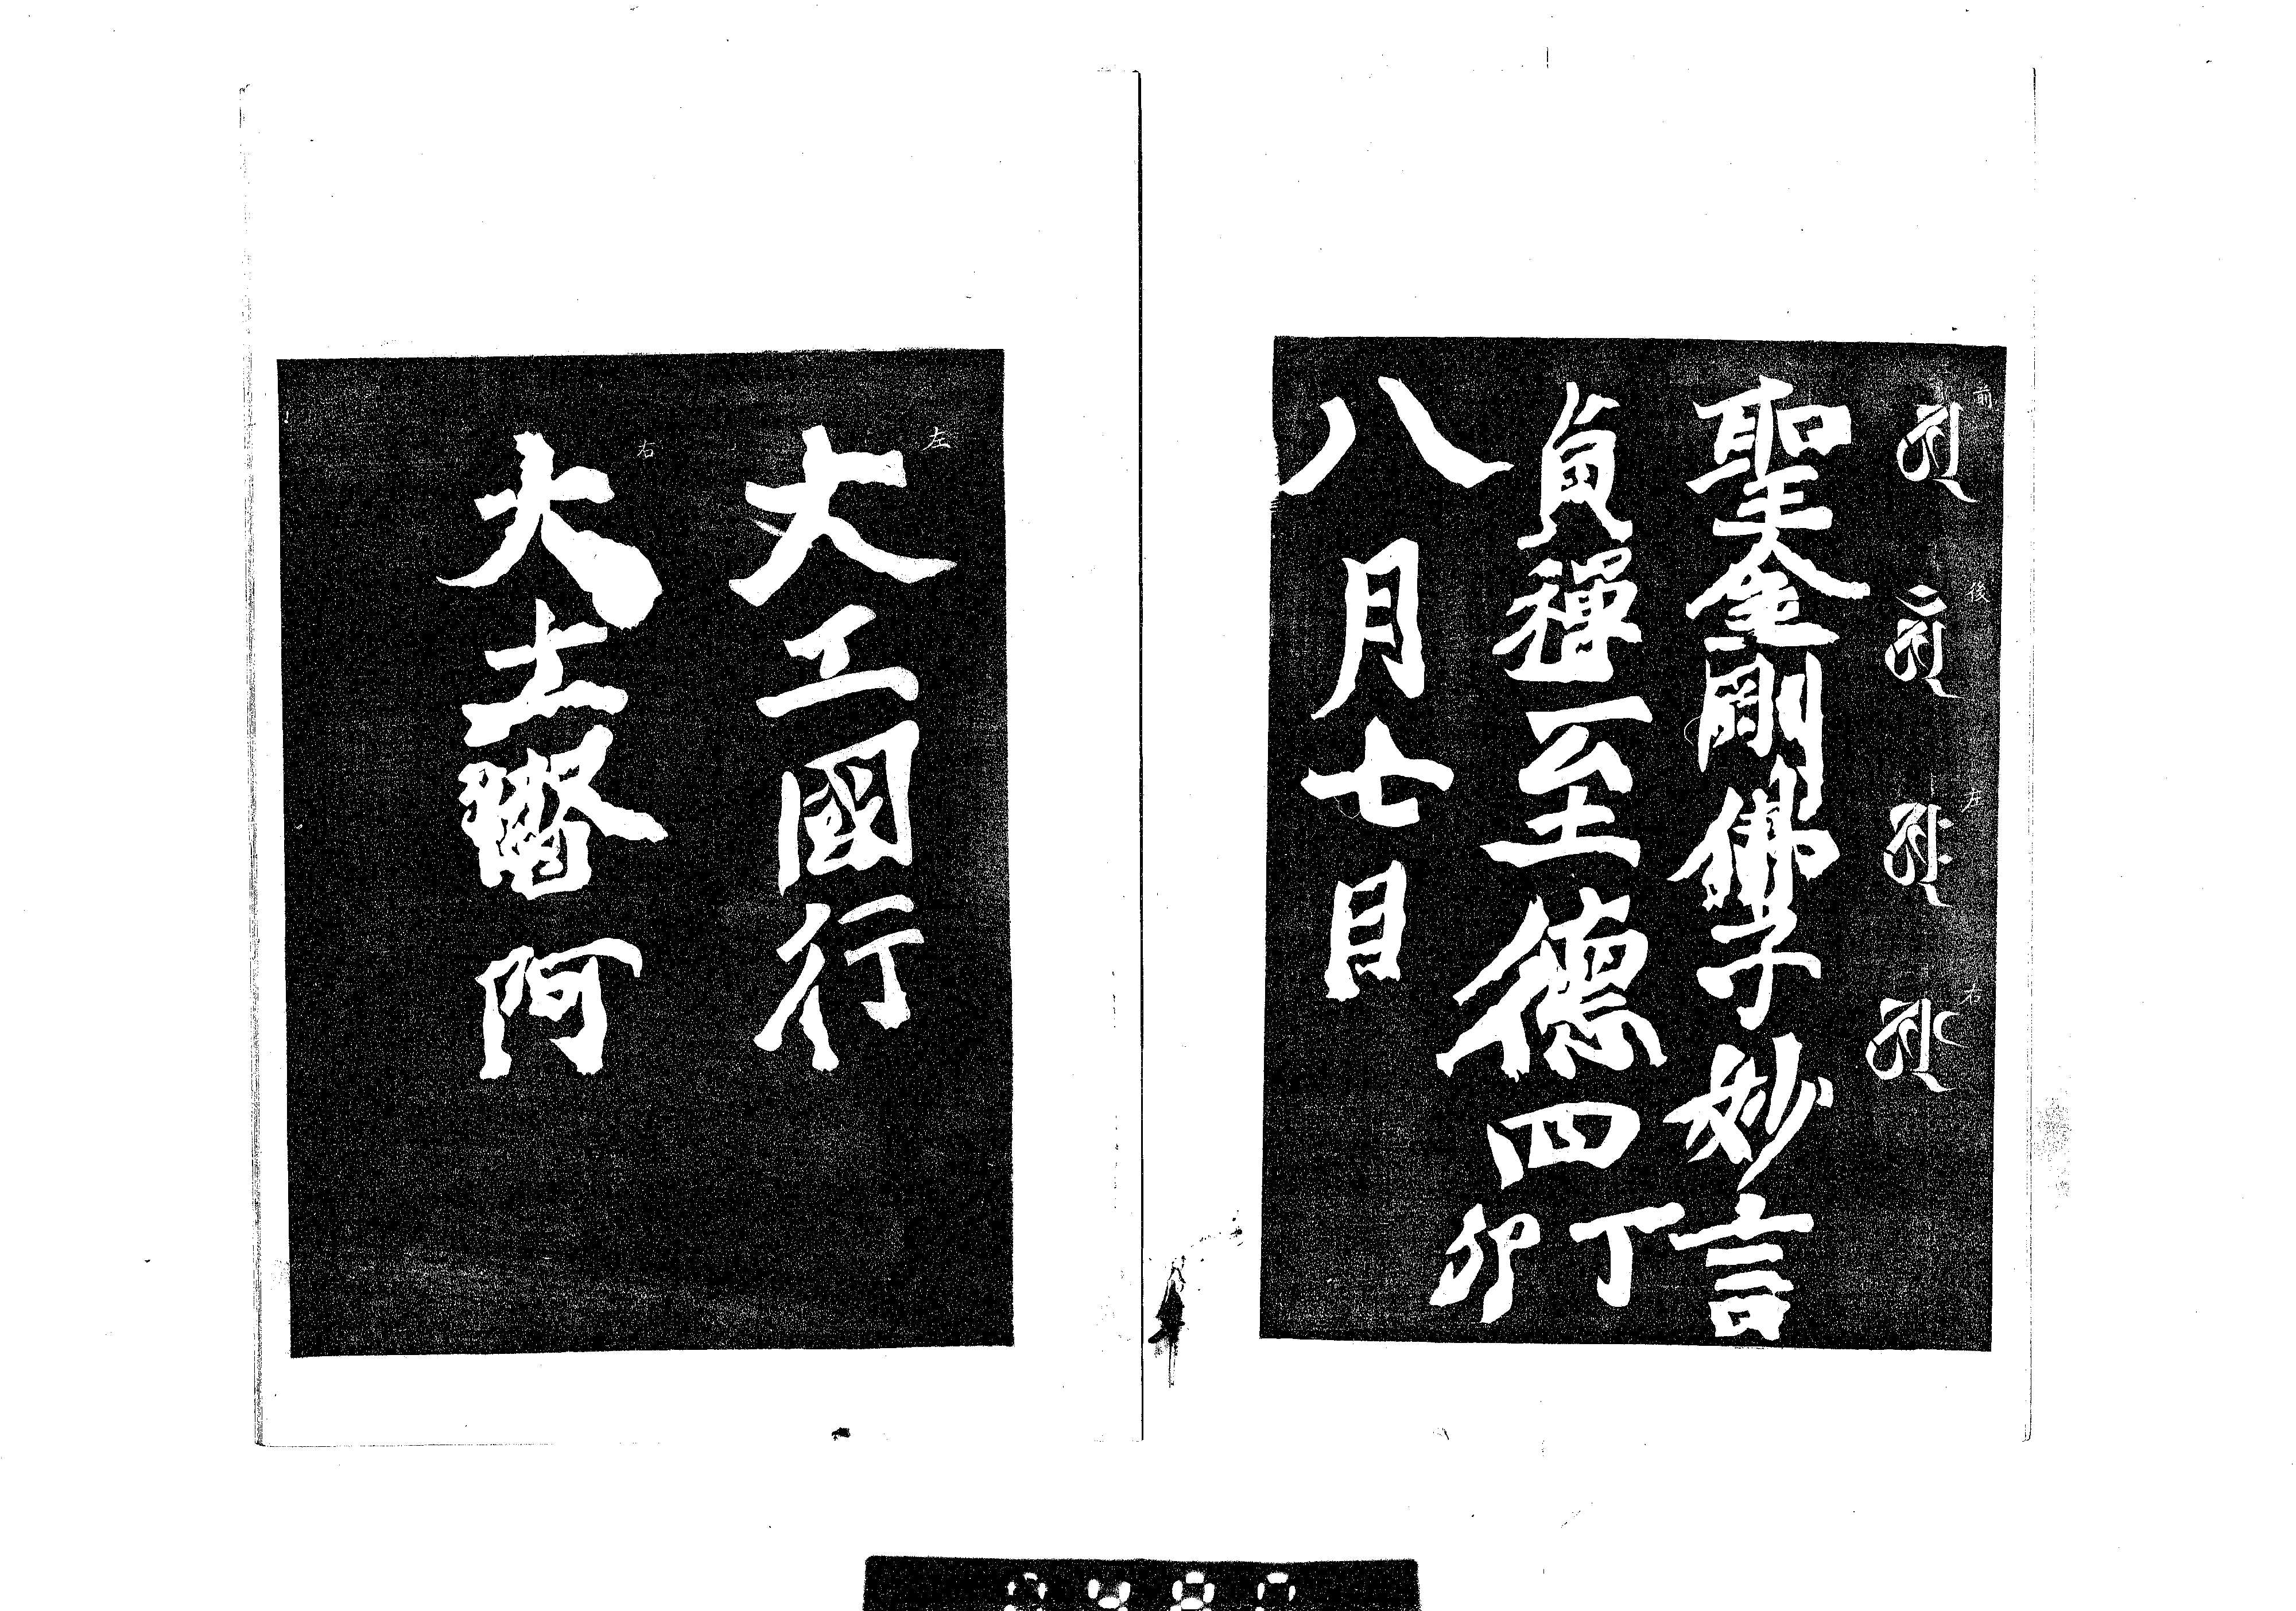 前
後
左
右
聖金剛佛子妙言
貞禪至德四丁卯
八月七日
左
大工國行
右
大士 阿